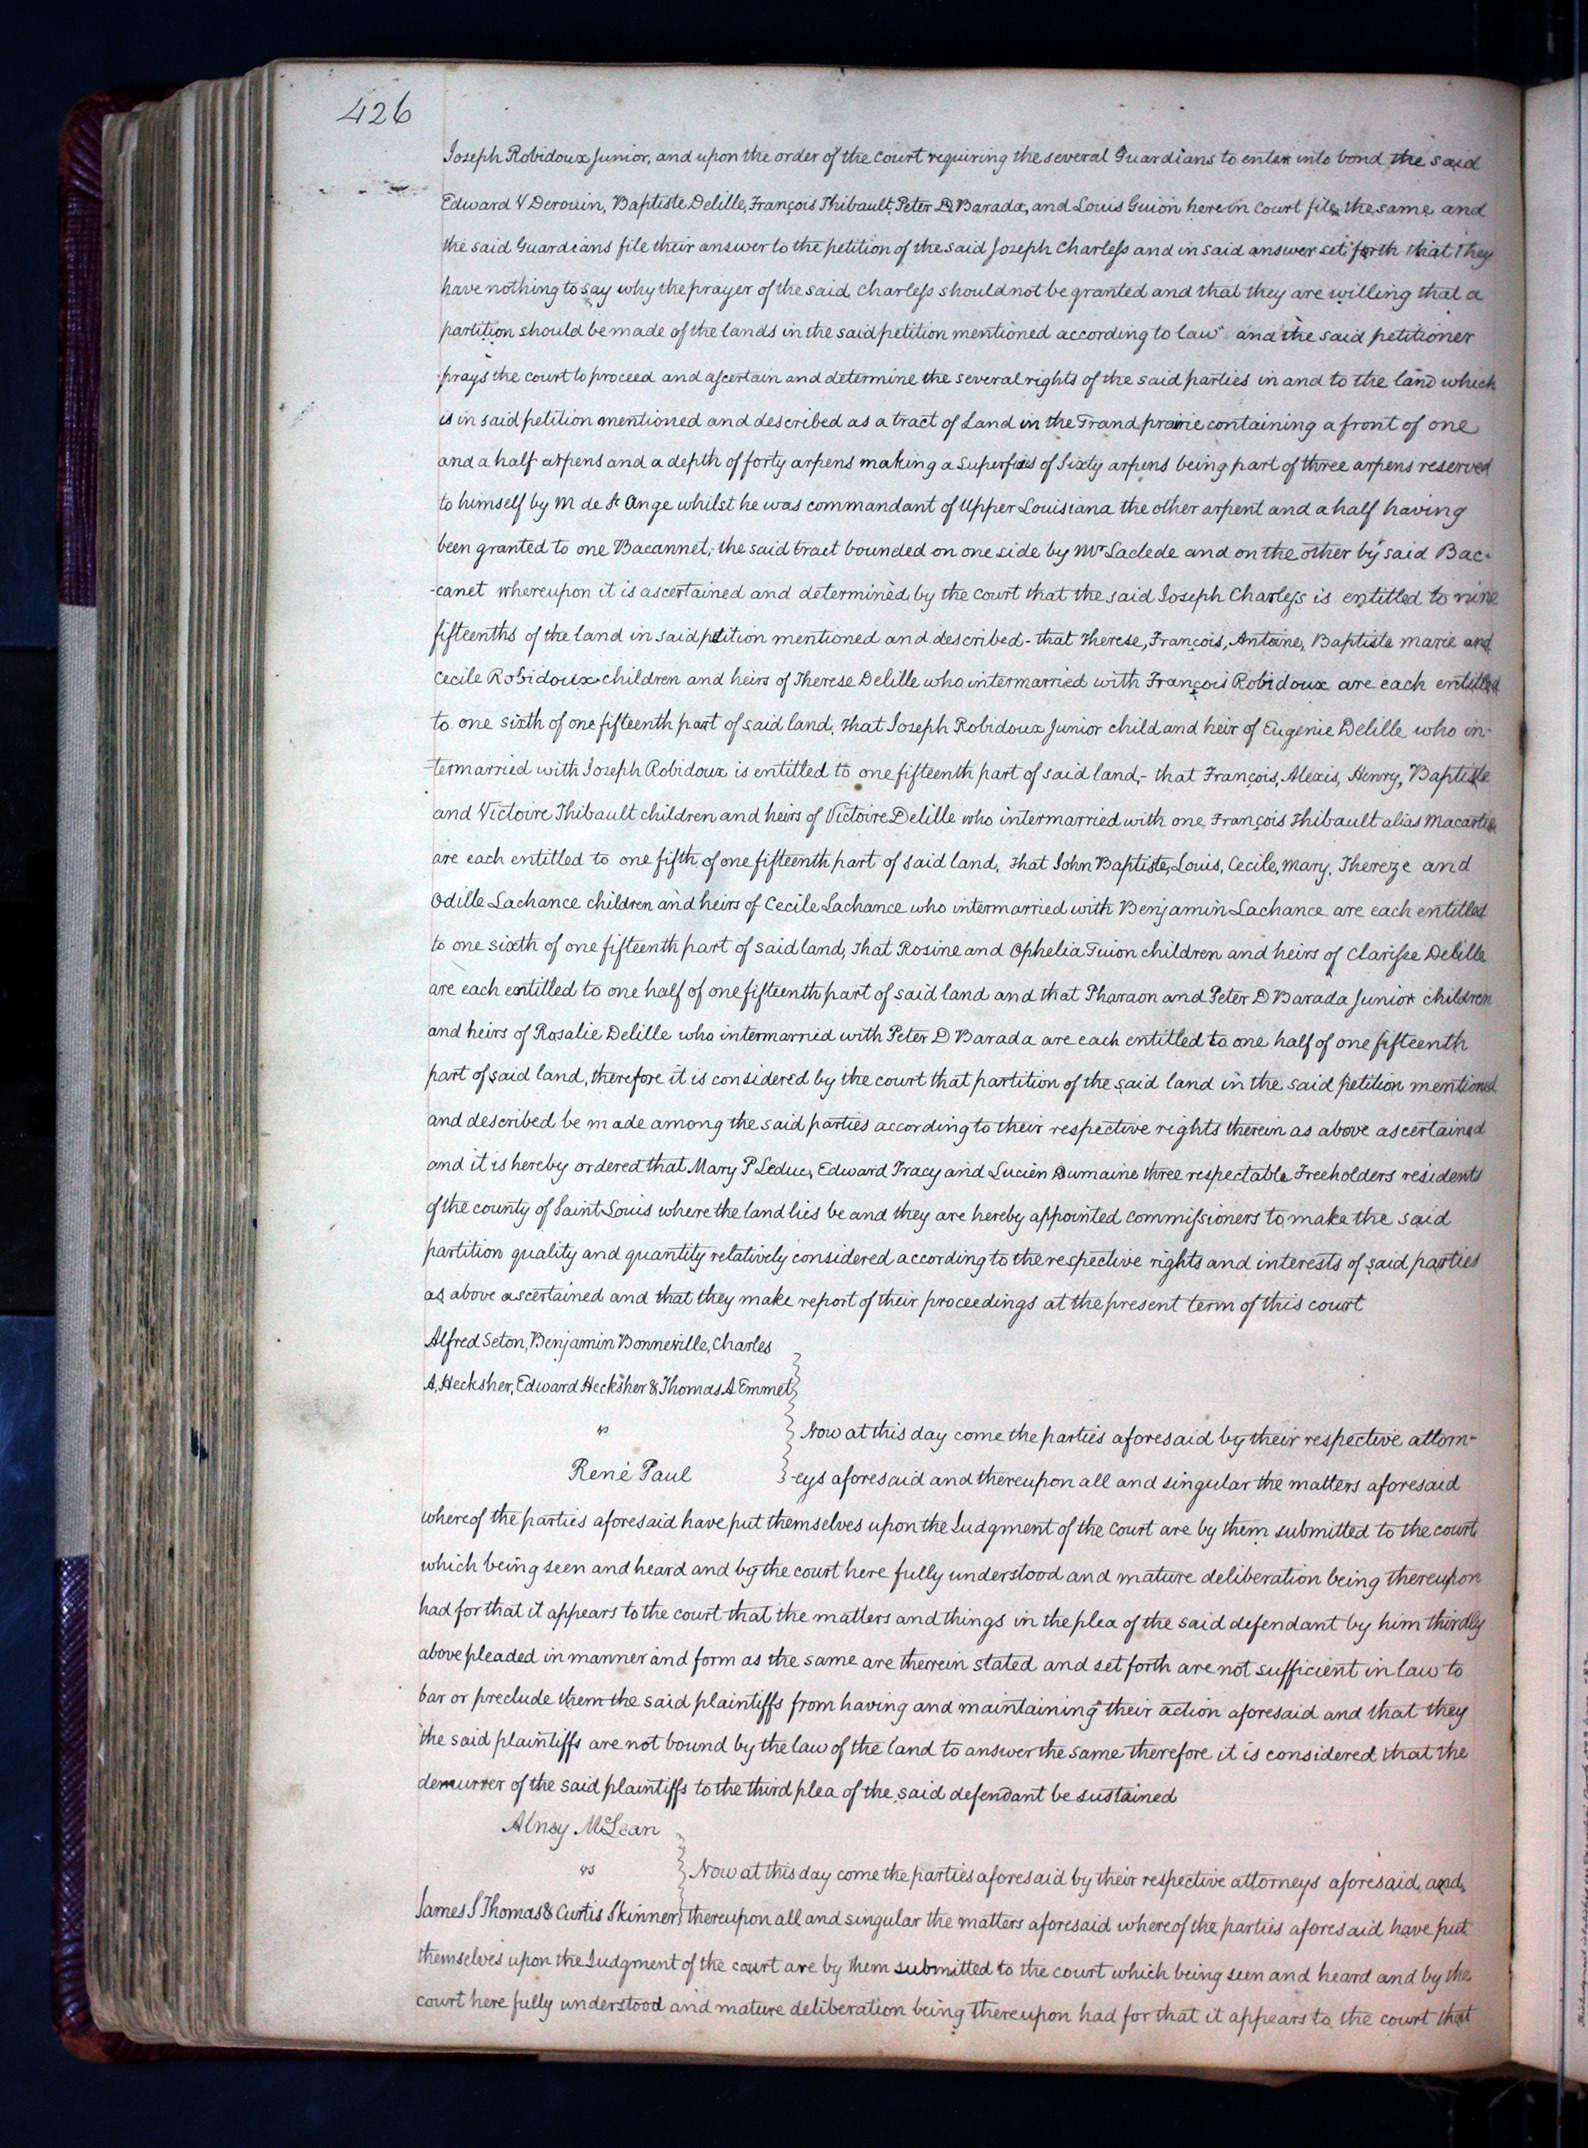 426
Joseph Robidoux Junior, and upon the order of the court requiring the several Guardians to enter into bond the said
Edward V Derouin, Baptiste Delille, François Thibault, Peter D Barada, and Louis Guion here in court file the same and
the said Guardians file their answer to the petition of the said Joseph Charless and in said answer set "forth that they
have nothing to say why the prayer of the said Charless should not be granted and that they are willing that a
partition should be made of the lands in the said petition mentioned according to law" and the said petitioner
prays the court to proceed and ascertain and determine the several rights of the said parties in and to the land which
is in said petition mentioned and described as a tract of Land in the Grand prairie containing a front of one
and a half arpens and a depth of forty arpens making a Superfices of Sixty arpens being part of three arpens reserved
to himself by M de St Ange whilst he was commandant of Upper Louisiana the other arpent and a half having
been granted to one Bacannet; the said tract bounded on one side by Mr Laclede and on the other by said Bac-
-canet whereupon it is ascertained and determined by the court that the said Joseph Charless is entitled to nine
fifteenths of the land in said petition mentioned and described - that Therese, François, Antoine, Baptiste Marie and
Cecile Robidoux children and heirs of Therese Delille who intermarried with François Robidoux are each entitled
to one sixth of one fifteenth part of said land, that Joseph Robidoux Junior child and heir of Eugenie Delille who in-
termarried with Joseph Robidoux is entitled to one fifteenth part of said land,- that François, Alexis, Henry, Baptiste
and Victoire Thibault children and heirs of Victoire Delille who intermarried with one François Thibault alias
are each entitled to one fifth of one fifteenth part of said land, that John Baptiste, Louis, Cecile, Mary, Thereze and
Odille Lachance children and heirs of Cecile Lachance who intermarried with Benjamin Lachance are each entitled
to one sixth of one fifteenth part of said land, that Rosine and Ophelia Guion children and heirs of Clarisse Delille
are each entitled to one half of one fifteenth part of said land and that Pharaon and Peter D Barada Junior children
and heirs of Rosalie Delille who intermarried with Peter D Barada are each entitled to one half of one fifteenth
part of said land, therefore it is considered by the court that partition of the said land in the said petition mentioned
and described be made among the said parties according to their respective rights therein as above ascertained
and it is hereby ordered that Mary P Leduc, Edward Tracy and Lucien Dumaine three respectable Freeholders residents
of the county of Saint Louis where the land lies be and they are hereby appointed commissioners to make the said
partition quality and quantity relatively considered according to the respective rights and interests of said parties
as above ascertained and that they make report of their proceedings at the present term of this court
Alfred Seton, Benjamin Bonneville, Charles
A, Hecksher, Edward Hecksher & Thomas A Emmet
vs
Now at this day come the parties aforesaid by their respective attorn-
René Paul
-eys aforesaid and thereupon all and singular the matters aforesaid
whereof the parties aforesaid have put themselves upon the Judgment of the court are by them submitted to the court
which being seen and heard and by the court here fully understood and mature deliberation being thereupon
had for that it appears to the court that the matters and things in the plea of the said defendant by him thirdly
above pleaded in manner and form as the same are therein stated and set forth are not sufficient in law to
bar or preclude them the said plaintiffs from having and maintaining their action aforesaid and that they
the said plaintiffs are not bound by the law of the land to answer the same therefore it is considered that the
demurrer of the said plaintiffs to the third plea of the said defendant be sustained
Alney McLean
vs
Now at this day come the parties aforesaid by their respective attorneys aforesaid, and,
James S Thomas & Curtis Skinner thereupon all and singular the matters aforesaid whereof the parties aforesaid have put
themselves upon the Judgment of the court are by them submitted to the court which being seen and heard and by the
court here fully understood and mature deliberation being thereupon had for that it appears to the court that